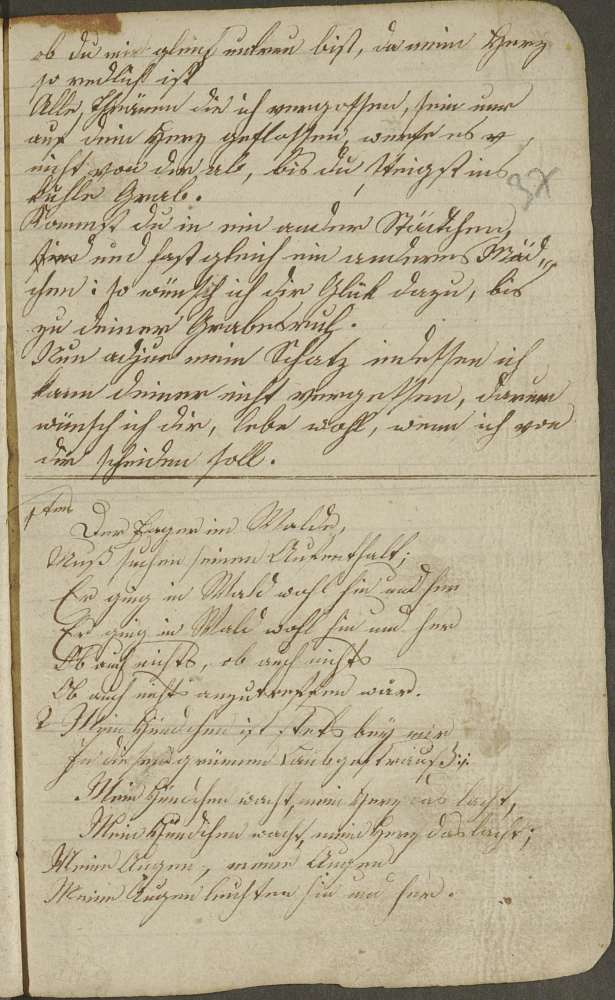 ob du mir gleich untreu bist, da mein Herz
so redlich ist
Alle Thränen die ich vergossen, sein nur
auf dein Herz geflossen,
nicht von dir ab, bis du steigst ins
kühle Grab.
37
Kommst du in ein ander Städtchen,
und hast gleich ein anderes Mäd„
chen: so wünsch ich dir Glük dazu, bis
zu deiner Grabesruh.
Nun adjue mein Schatz indessen ich
kann deiner nicht vergessen, darum
wünsch ich dir, lebe wohl, wenn ich von
dir scheiden soll.
1ten
Der Jager im Walde,
Muß suchen seinen Aufenthalt;
Er ging im Wald wohl hin und her
Er ging im Wald wohl hin und her
Ob auch nichts, ob auch nichts
Ob auch nichts anzutreffen wär.
2 Mein Hündchen ist stets bey mir
In diesem grünen Laubgesträuß :;:
Mein Hündchen wacht, mein Herz das lacht,
Mein Hündchen wacht, mein Herz das lacht;
Meine Augen, meine Augen
Meine Augen leuchten hin und her.